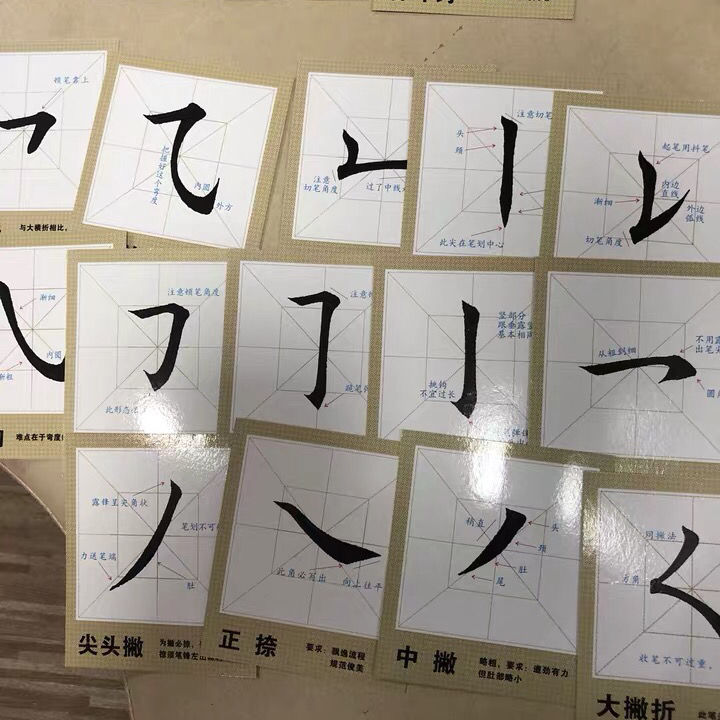 顿笔靠上
与大横折相比，
把握好这个弯度
内圆
外方
注意
切笔角度
过了中线
注意切笔
头
颈
此尖在笔划中心
起笔用抖笔
内边
直线
渐细
外边
弧线
切笔角度
渐细
内圆
渐粗
难点在于弯度
注意顿笔角度
此形态
注意
竖部分
跟垂露竖
基本相同
挑钩
不宜过长
从粗到细
不用露
出笔尖
圆
露锋呈尖角状
笔划不可
力送笔端
肚
尖头撇
为撇必掠，
掠须笔锋左出
此角必写出
向上往平
正捺
要求：飘逸流程
规范俊美
稍直
头
颈
肚
尾
中撇
略粗，要求：遒劲有力
但肚部略小
同撇法
方角
收笔不可过重，
大撇折